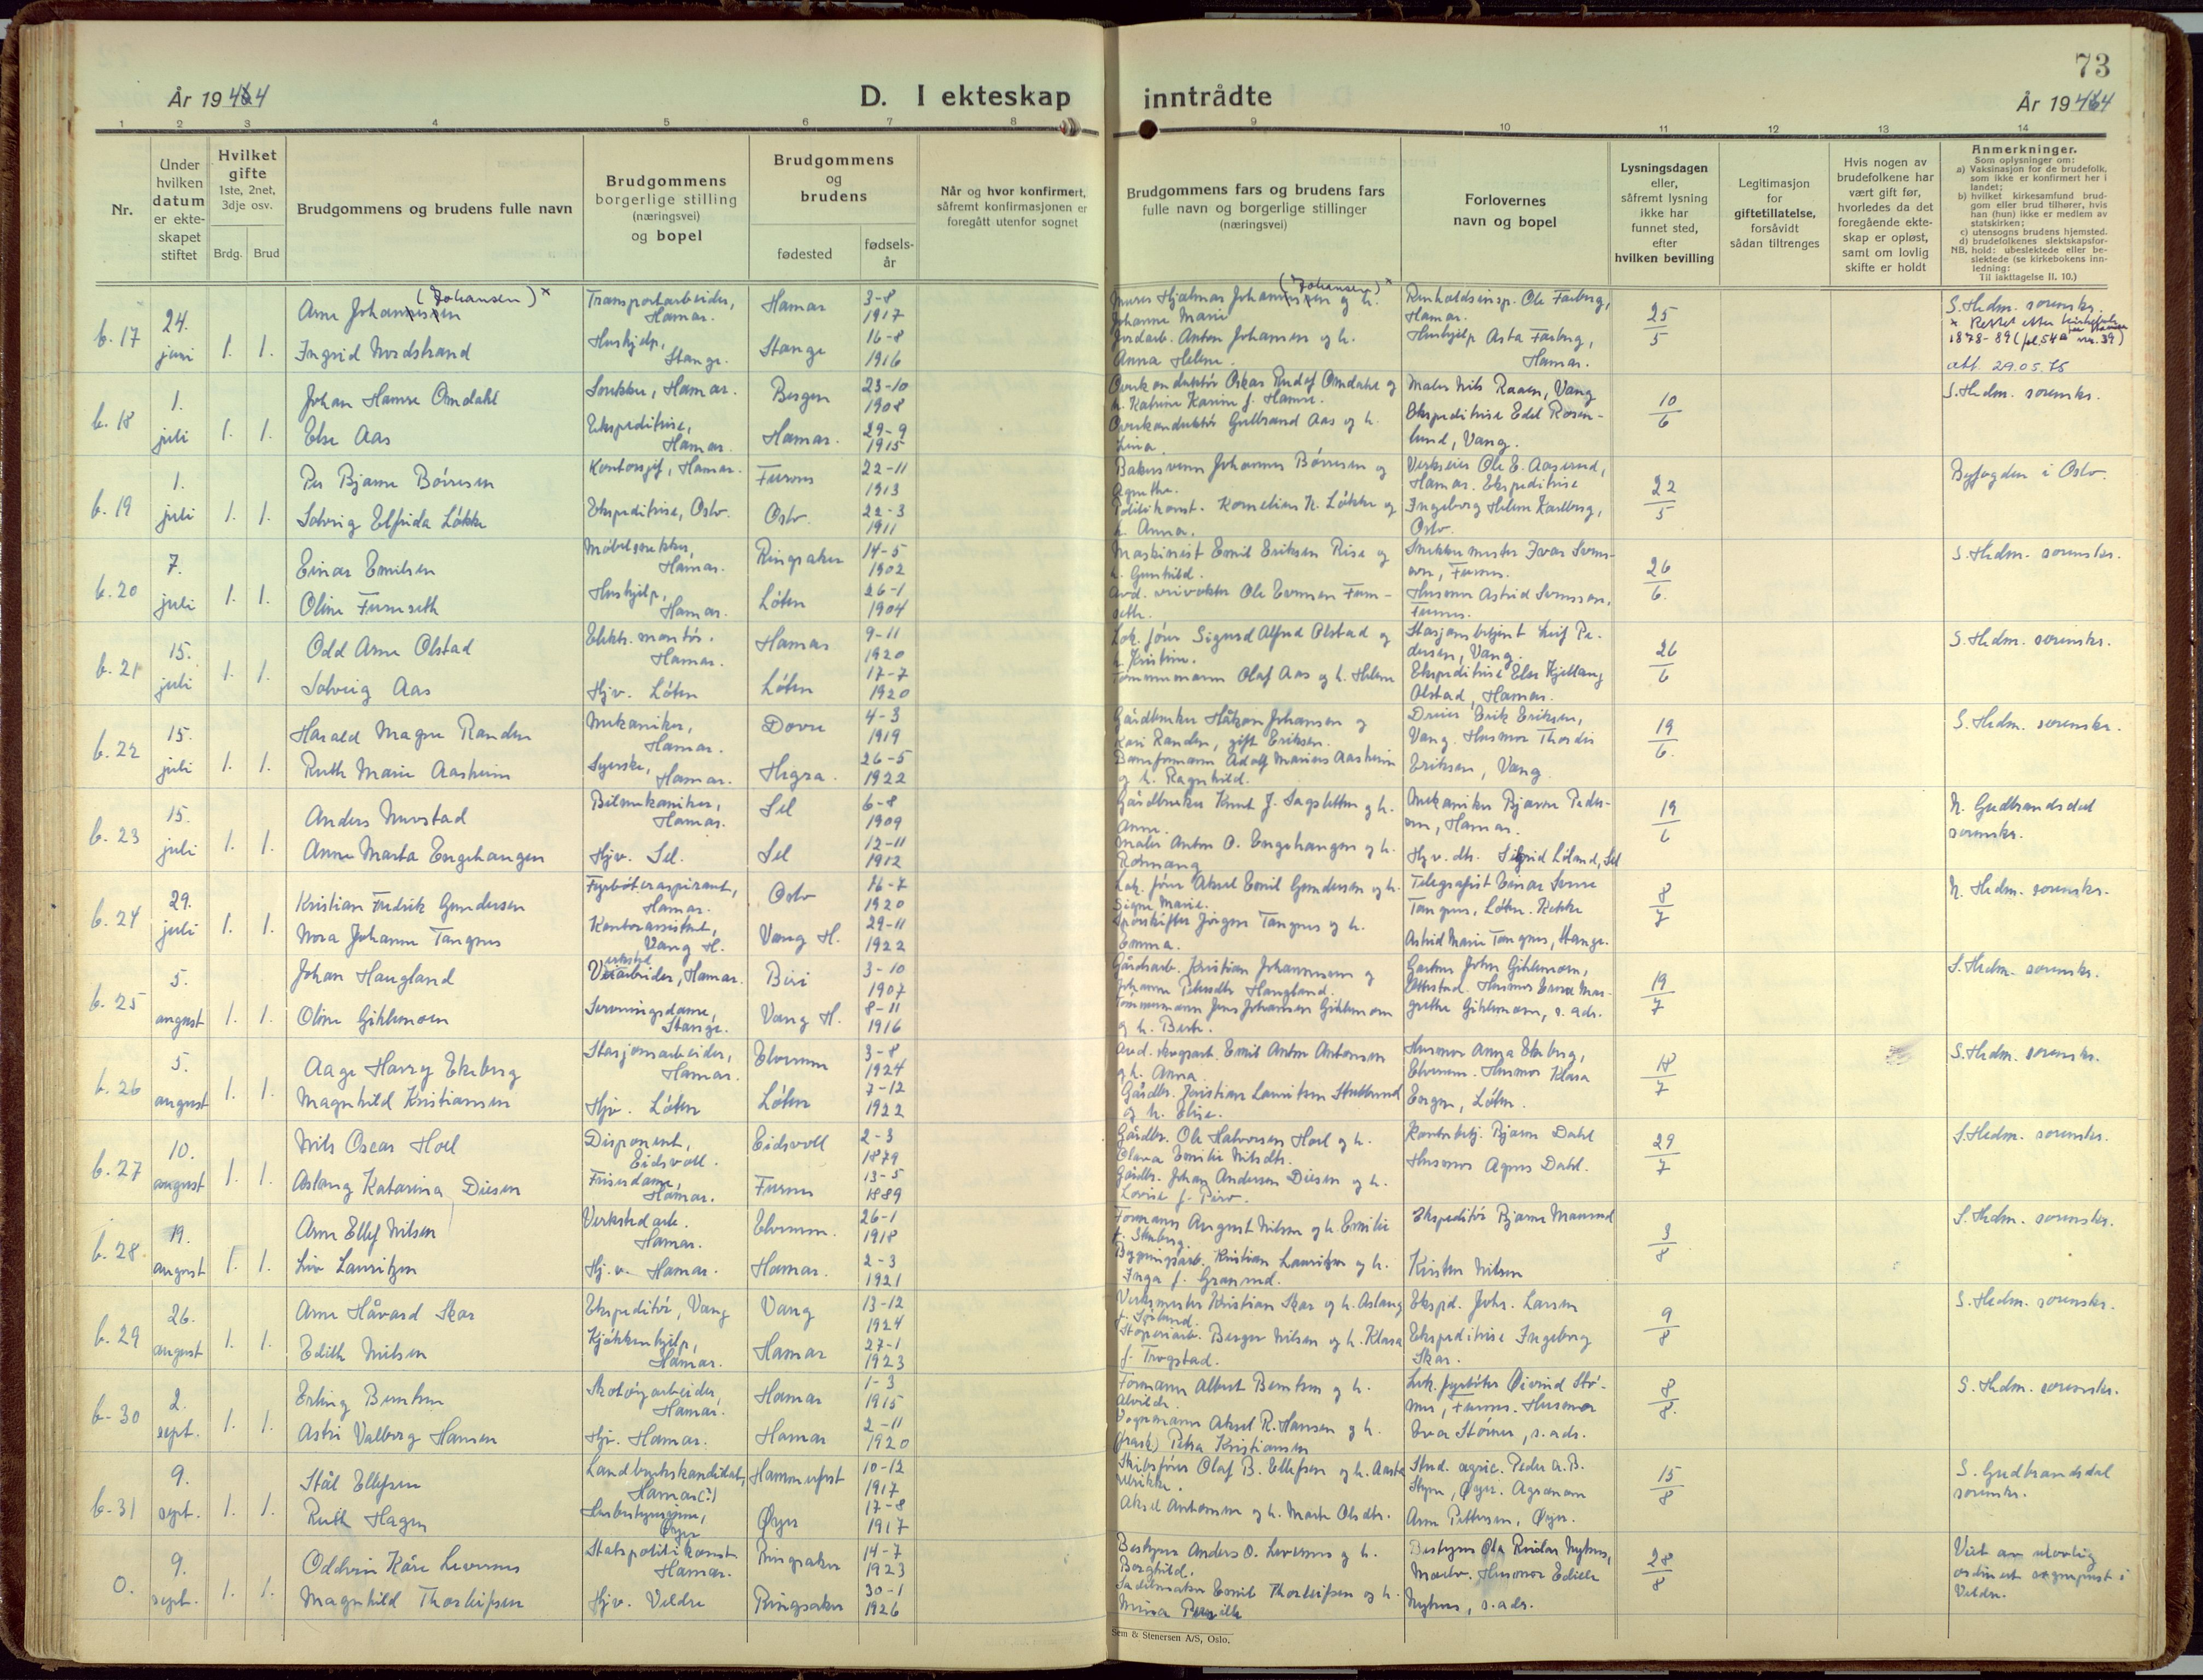 73
År 1944
D. I ekteskap inntrådte
År 1944
1 2 3 4 5 6 7 8 9 10 11 12 13 14
Nr.
Under hvilken datum er ekteskapet stiftet
Hvilket gifte
1ste, 2net, 3dje osv.
Brdg. Brud
Brudgommens og brudens fulle navn
Brudgommens borgerlige stilling (næringsvei) og bopel
Brudgommens og brudens
fødested
fødselsår
Når og hvor konfirmert, såfremt konfirmasjonen er foregått utenfor sognet
Brudgommens fars og brudens fars fulle navn og borgerlige stillinger (næringsvei)
Forlovernes navn og bopel
Lysningsdagen eller, såfremt lysning ikke har funnet sted, efter hvilken bevilling
Legitimasjon for giftetillatelse, forsåvidt sådan tiltrenges
Hvis nogen av brudefolkene har vært gift før, hvorledes da det foregående ekteskap er opløst, samt om lovlig skifte er holdt
Anmerkninger.
Som oplysninger om:
a) Vaksinasjon for de brudefolk, som ikke er konfirmert her i landet;
b) hvilket kirkesamfund brudgom eller brud tilhører, hvis han (hun) ikke er medlem av statskirken;
c) utensogns brudens hjemsted.
d) brudefolkenes slektskapsforhold: ubeslektede eller beslektede (se kirkebokens innledning:
NB.
Til iakttagelse II. 10.)
b. 17 24. juni 1. 1.
Arne Johannesen (Johansen) x Transportarbeider, Hamar. Hamar 3-8 1917
Ingrid Nordstrand Hushjelp, Stange. Stange 16-8 1916
Hjalmar (Johansen) x og h. Johanne Marie
Jordarb. Anton Johansen og h. Anna Helene.
Renholdsinsp. Ole Farberg, Hamar.
Hushjelp Asta Farberg, Hamar.
25/5
S. Hedm. sorenskr.
1878-89
29.05.75
b. 18 1. juli 1. 1.
Johan Hamre Omdahl Snekker, Hamar. Bergen 23-10 1908
Else Aas Ekspeditrise, Hamar. Hamar. 29-9 1915
Overkonduktør Oskar Rudolf Omdahl og h. Katrine Karine f. Hamre.
Overkonduktør Gulbrand Aas og h. Lina.
Maler Nils Raaen, Vang
Ekspeditrise Edel Rosenlund, Vang.
10/6
S. Hedm. sorenskr.
b. 19 1. juli 1. 1.
Per Bjarne Børresen Kontorsjef, Hamar. Furnes 22-11 1913
Solveig Elfrida Løkke Ekspeditrise, Oslo. Oslo. 22-3 1911
Bakersvenn Johannes Børresen og Agnethe.
Politikonst. Kornelius N. Løkke og h. Anna.
Verkseier Ole E. Aaserud, Hamar. Ekspeditrise
Ingeborg Helene Karlberg, Oslo.
22/5
Byfogden i Oslo.
b. 20 7. juli 1. 1.
Einar Emilsen Møbelsnekker, Hamar. Ringsaker 14-5 1902
Oline Furuseth Hushjelp, Hamar. Løten 26-1 1904
Maskinist Emil Eriksen Rise og h. Gunhild.
Ole Evensen Furuseth.
Snekkermester Ivar Svensson, Furnes.
Husmor Astrid Svensson, Furnes.
26/6.
S. Hedm. sorenskr.
b. 21 15. juli 1. 1.
Odd Arne Olstad Elektr. montør. Hamar. Hamar 9-11 1920
Solveig Aas Hjv. Løten Løten 17-7 1920
Lok. fører Sigurd Alfred Olstad og h. Kristine.
Tømmermann Olaf Aas og h. Helene
Stasjonsbetjent Leif Pedersen, Vang.
Ekspeditrise Else Kjellaug Olstad, Hamar.
26/6
S. Hedm. sorenskr.
b. 22 15. juli 1. 1.
Harald Magne Randen Mekaniker, Hamar. Dovre 4-3 1919
Ruth Marie Aasheim Syerske, Hamar. Hegra. 26-5 1922
Gårdbruker Håkon Johansen og Kari Randen, gift Eriksen.
Baneformann Adolf Marius Aasheim og h. Ragnhild.
Dreier Erik Eriksen, Vang. Husmor Thordis Eriksen, Vang.
19/6.
S. Hedm. sorenskr.
b. 23 15. juli 1. 1.
Anders Murstad Bilmekaniker, Hamar. Sel 6-8 1909
Anne Marta Engehaugen Hjv. Sel. Sel 12-11 1912
Gårdbruker Knut J. Sagsletten og h. Anne.
Maler Anton O. Engehaugen og h.
Mekaniker Bjarne Pedersen, Hamar.
Hjv. dtr. Sigrid Liland, Sel
19/6
N. Gudbrandsdal sorenskr.
b. 24 29. juli 1. 1.
Kristian Fredrik Gundersen Fyrbøteraspirant, Hamar. Oslo 16-7 1920
Nora Johanne Tangnes Kontorassistent, Vang H. Vang H. 29-11 1922
Lok. fører Aksel Emil Gundersen og h. Signe Marie.
Sporskifter Jørgen Tangnes og h. Emma.
Telegrafist Einar Sverre Tangnes, Løten.
Astrid Marie Tangnes, Stange.
8/7
N. Hedm. sorenskr.
b. 25 5. august 1. 1.
Johan Haugland Verkstedarbeider, Hamar. Biri 3-10 1907
Oline Gihlemoen Serveringsdame, Stange. Vang H. 8-11 1916
Gårdsarb. Kristian Johannesen og Johanne Pedersdtr. Haugland.
Tømmermann Jens Johansen Gihlemoen og h. Berte.
Gartner John Gihlemoen, Ottestad. Husmor Margrethe Gihlemoen, s. adr.
19/7
S. Hedm. sorenskr.
b. 26 5. august 1. 1.
Aage Harry Ekeberg Stasjonsarbeider, Hamar. Elverum 3-8 1924
Magnhild Kristiansen Hjv. Løten Løten 7-12 1922
Avd. skogsarb. Emil Anton Antonsen og h. Anna.
Gårdbr. Kristian Lauritsen Stubberud og h. Elise.
Husmor Anna Ekeberg, Elverum. Husmor Klara Engen, Løten.
18/7
S. Hedm. sorenskr.
b. 27 10. august 1. 1.
Nils Oscar Hoel Disponent, Eidsvoll. Eidsvoll 2-3 1879
Aslaug Katarina Diesen Frisørdame, Hamar. Furnes 13-5 1889
Gårdbr. Ole Halvorsen Hoel og h. Olava Emilie Nilsdtr.
Gårdbr. Johan Andersen Diesen og h. Lovise f.
Kontorbetj. Bjarne Dahl
Husmor Agnes Dahl.
29/7
S. Hedm. sorenskr.
b. 28 19. august 1. 1.
Arne Ellef Nilsen Verkstedarb. Hamar. Elverum. 26-1 1918
Liv Lauritzen Hj. v. Hamar. Hamar. 2-3 1921
Formann August Nilsen og h. Emilie f. Stenberg.
Bygningsarb. Kristian Lauritzen og h. Inga f. Granerud.
Ekspeditør Bjarne
Kirsten Nilsen
3/8
S. Hedm. sorenskr.
b. 29 26. august 1. 1.
Arne Håvard Skar Ekspeditør, Vang Vang 13-12 1924
Edith Nilsen Kjøkkenhjelp, Hamar. Hamar 27-1 1923
Verksmester Kristian Skar og h. Aslaug
Støperiarb. Berger Nilsen og h. Klara f. Trogstad.
Ekspd. Johs. Larsen
Ekspeditrise Ingeborg Skar.
9/8
S. Hedm. sorenskr.
b. 30 2. sept. 1. 1.
Erling Berntsen Skotøyarbeider, Hamar. Hamar 1-3 1915
Astri Valborg Hansen Hjv. Hamar. Hamar 2-11 1920
Formann Albert Berntsen og h. Alvilde.
Vognmann Aksel R. Hansen og h. (frask.) Petra Kristiansen
Lok. fyrbøter Øivind Størmer, Furnes. Husmor
Eva Størmer, s. adr.
8/8.
S. Hedm. sorenskr.
b. 31 9. sept. 1. 1.
Stål Ellefsen Landbrukskandidat, Hamar(?) Hammerfest 10-12 1917
Ruth Hagen Husbestyrerinne, Øyer Øyer 17-8 1917
Skibsfører Olaf B. Ellefsen og h. Aasta Ulrikke.
Aksel Antonsen og h. Marte Olsdtr.
Stud. agric. Peder A. B. Øyer. Agronom
Arne Pettersen, Øyer.
15/8
S. Gudbrandsdal sorenskr.
0. 9. sept. 1. 1.
Oddvin Kåre Levernes Statspolitikonst. Hamar. Ringsaker 14-7 1923
Magnhild Thorleifsen Hjv. Veldre Ringsaker 30-1 1926
Bestyrer Anders O. Levernes og h. Borghild.
Salmaker Emil Thorleifsen og h. Mina Pernille
Bestyrer Ola Reidar Nyhus, Moelv. Husmor Edith Nyhus, s. adr.
28/8
Viet av ulovlig ordinert sogneprest i Veldre.
Sem & Stenersen A/S, Oslo.